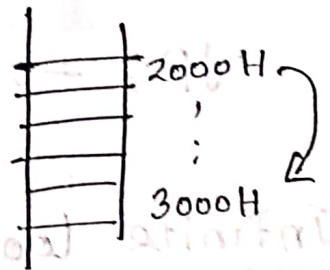 2000H
3000H